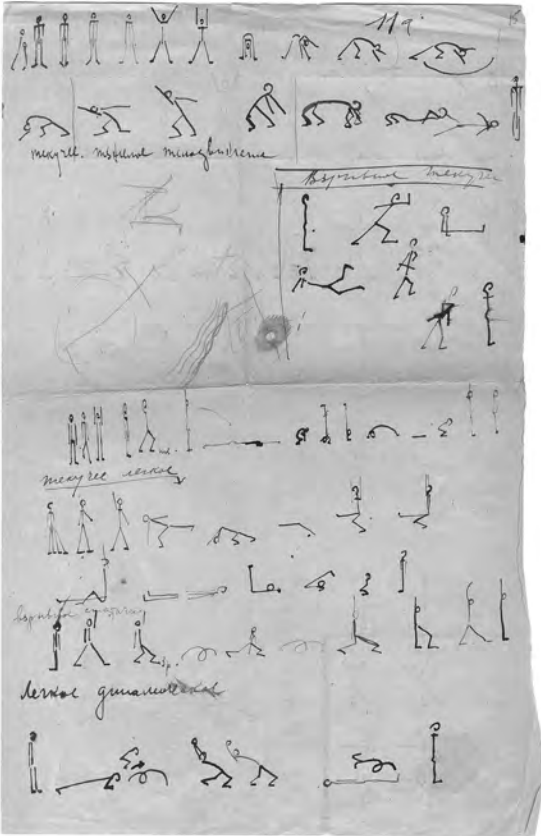 119
текучее. тяжелое телодвижение
Взрывное текучее
текучее легкое
взрывное
Легкое динамическое